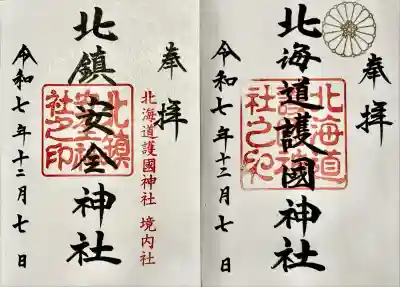 奉拝
北海道護國神社 境内社
北鎮安全神社
北鎮
社之印
令和七年十二月七日
奉拝
北海道護國神社
北海道
社之印
令和七年十二月七日